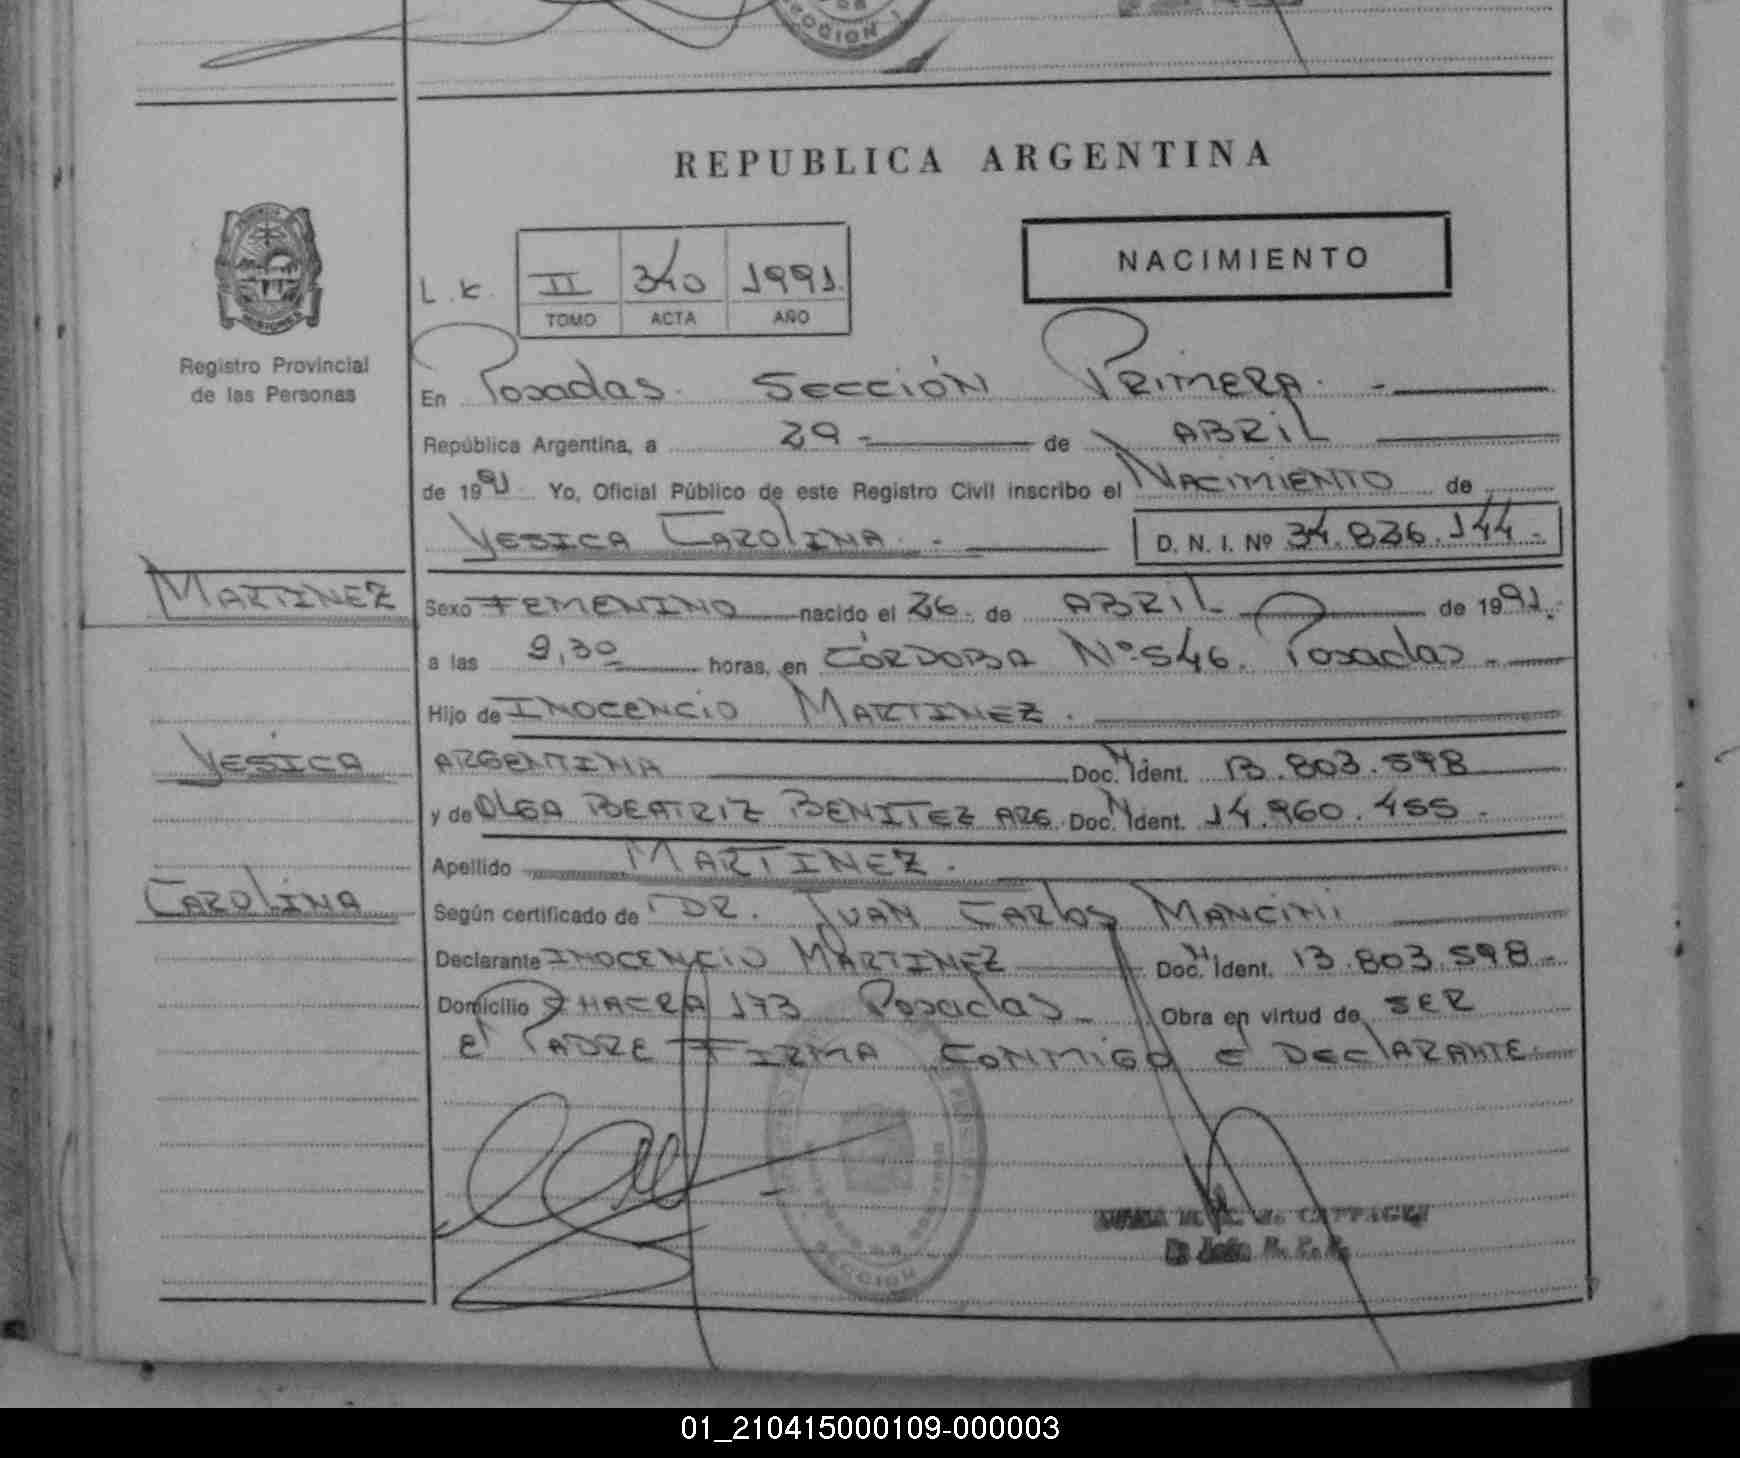 SECCION 1
REPUBLICA ARGENTINA
NACIMIENTO
L. K. II 340 1991.
TOMO ACTA AÑO
MISIONES
Registro Provincial
de las Personas
En Posadas. SECCIÓN PRIMERA. -
República Argentina, a 29 - de ABRIL
de 1991 Yo, Oficial Público de este Registro Civil inscribo el NACIMIENTO de
YESICA CAROLINA. - D. N. I. Nº 34.826.144 -
MARTINEZ
Sexo FEMENINO nacido el 26. de ABRIL de 1991.
a las 9,30 horas, en CÓRDOBA Nº 546. Posadas -
Hijo de INOCENCIO MARTINEZ.
YESICA
ARGENTINA Doc. Ident. 13.803.598
y de OLGA BEATRIZ BENITEZ ARG. Doc. Ident. 14.960.455 -
Apellido MARTINEZ.
CAROLINA
Según certificado de DR. JUAN CARLOS MANCINI
Declarante INOCENCIO MARTINEZ Doc. Ident. 13.803.598 -
Domicilio CHACRA 173 Posadas - Obra en virtud de SER
El PADRE FIRMA CONMIGO E DECLARANTE.
SECCION
R. P. P.
01_210415000109-000003